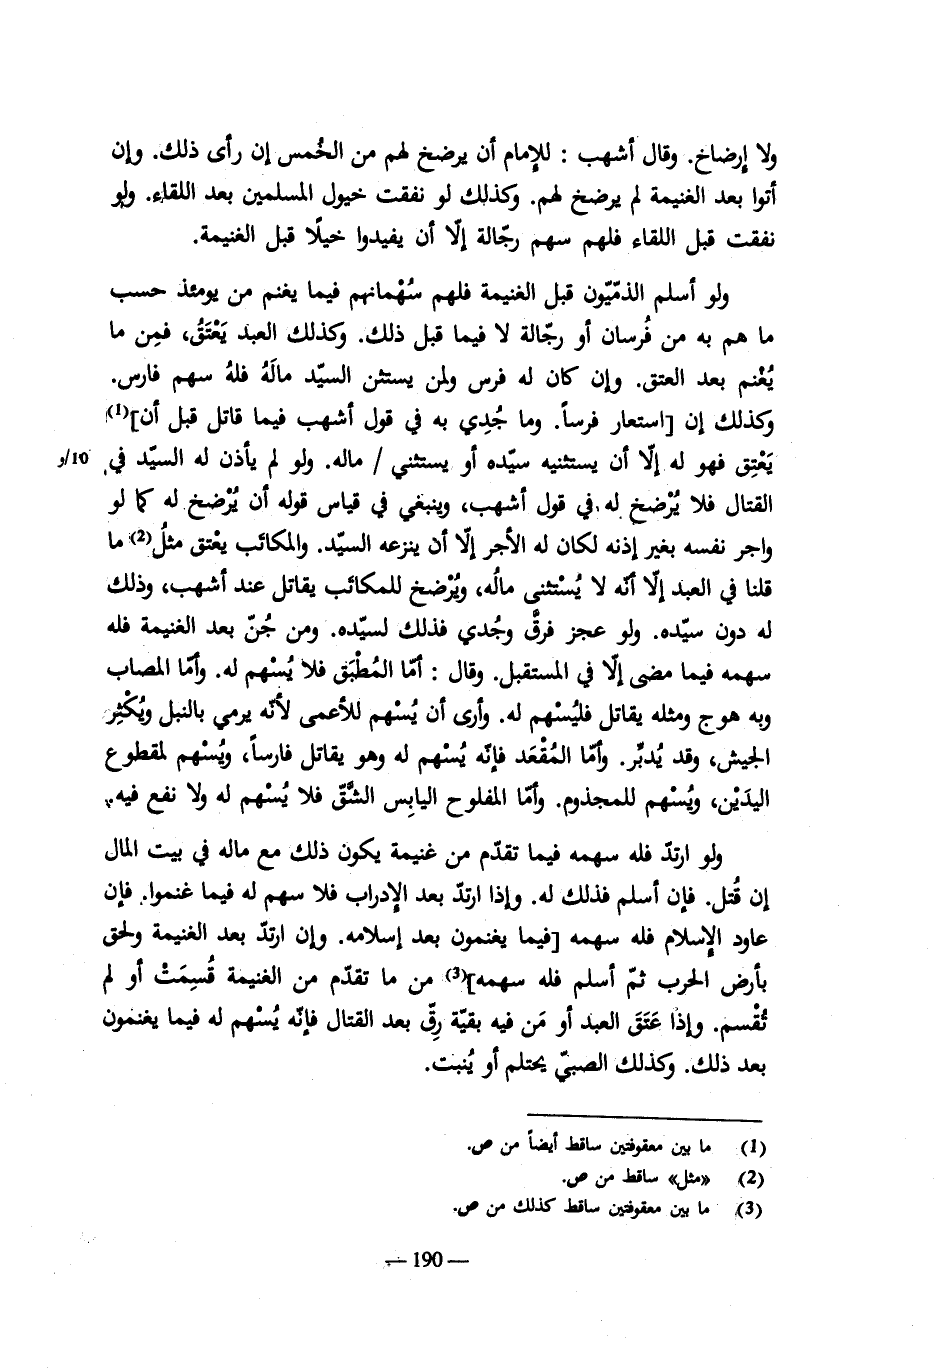 ولا إرضاخ. وقال أشهب : للإمام أن يرضخ لهم من الخُمس إن رأى ذلك. وإن
أتوا بعد الغنيمة لم يرضخ لهم. وكذلك لو نفقت خيول المسلمين بعد اللقاء. ولو
نفقت قبل اللقاء فلهم سهم رجّالة إلّا أن يفيدوا خيلًا قبل الغنيمة.
ولو أسلم الذمّيّون قبل الغنيمة فلهم سُهْمانهم فيما يغنم من يومئذ حسب
ما هم به من فُرسان أو رجّالة لا فيما قبل ذلك. وكذلك العبد يَعْتَقُ، فمِن ما
يُغْنم بعد العتق. وإن كان له فرس ولمن يستثن السيّد مالَهُ فلهُ سهم فارس.
وكذلك إن [استعار فرساً. وما جُدِي به في قول أشهب فيما قاتل قبل أن](1)
يَعْتِق فهو له إلّا أن يستثنيه سيّده أو يستثني / ماله. ولو لم يأذن له السيّد في 10/و
القتال فلا يُرْضخ له في قول أشهب، وينبغي في قياس قوله أن يُرْضخ له كما لو
واجر نفسه بغير إذنه لكان له الأجر إلّا أن ينزعه السيّد. والمكاتَب يعْتق مثلُ(2) ما
قلنا في العبد إلّا أنّه لا يُسْتثنى مالُه، ويُرْضخ للمكاتَب يقاتل عند أشهب، وذلك
له دون سيّده. ولو عجز فرقَّ وجُدي فذلك لسيّده. ومن جُنّ بعد الغنيمة فله
سهمه فيما مضى إلّا في المستقبل. وقال : أمّا المُطْبَق فلا يُسْهم له. وأمّا المصاب
وبه هوج ومثله يقاتل فليُسْهم له. وأرى أن يُسْهم للأعمى لأنّه يرمي بالنبل ويُكْثِر
الجيش، وقد يُدبِّر. وأمّا المُقْعَد فإنّه يُسْهم له وهو يقاتل فارساً، ويُسْهم لمقطوع
اليدَيْن، ويُسْهم للمجذوم. وأمّا المفلوح اليابِس الشَّقّ فلا يُسْهم له ولا نفع فيه.
ولو ارتدّ فله سهمه فيما تقدّم من غنيمة يكون ذلك مع ماله في بيت المال
إن قُتل. فإن أسلم فذلك له. وإذا ارتدّ بعد الإدراب فلا سهم له فيما غنموا. فإن
عاود الإسلام فله سهمه [فيما يغنمون بعد إسلامه. وإن ارتدّ بعد الغنيمة ولحق
بأرض الحرب ثمّ أسلم فله سهمه](3) من ما تقدّم من الغنيمة قُسِمَتْ أو لم
تُقْسم. وإذا عَتَقَ العبد أو مَن فيه بقيّة رِقّ بعد القتال فإنّه يُسْهم له فيما يغنمون
بعد ذلك. وكذلك الصبيّ يحتلم أو يُنبت.
(1) ما بين معقوفتين ساقط أيضاً من ص.
(2) «مثل» ساقط من ص.
(3) ما بين معقوفتين ساقط كذلك من ص.
— 190 —